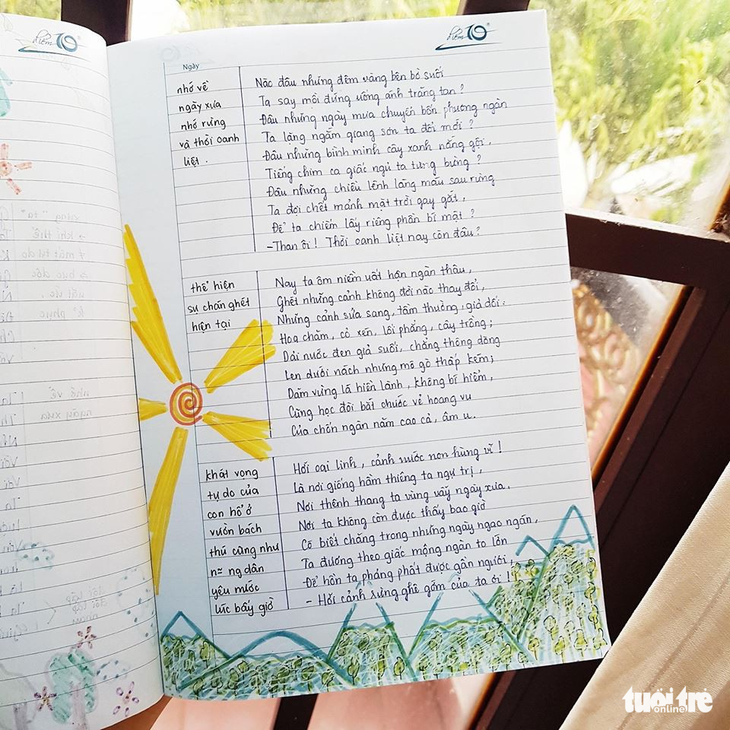 điểm 10
Ngày
nhớ về
ngày xưa
nhớ rừng
và thời oanh
liệt.
Nào đâu những đêm vàng bên bờ suối
Ta say mồi đứng uống ánh trăng tan?
Đâu những ngày mưa chuyển bốn phương ngàn
Ta lặng ngắm giang sơn ta đổi mới?
Đâu những bình minh cây xanh nắng gội,
Tiếng chim ca giấc ngủ ta tưng bừng?
Đâu những chiều lênh láng máu sau rừng
Ta đợi chết mảnh mặt trời gay gắt,
Để ta chiếm lấy riêng phần bí mật?
-Than ôi! Thời oanh liệt nay còn đâu?
thể hiện
sự chán ghét
hiện tại
Nay ta ôm niềm uất hận ngàn thâu,
Ghét những cảnh không đời nào thay đổi,
Những cảnh sửa sang, tầm thường, giả dối:
Hoa chăm, cỏ xén, lối phẳng, cây trồng;
Dải nước đen giả suối, chẳng thông dòng
Len dưới nách những mô gò thấp kém;
Dăm vừng lá hiền lành, không bí hiểm,
Cũng học đòi bắt chước vẻ hoang vu
Của chốn ngàn năm cao cả, âm u.
khát vọng
tự do của
con hổ ở
vườn bách
thú cũng như
n= ng dân
yêu nước
lúc bấy giờ
Hỡi oai linh, cảnh nước non hùng vĩ!
Là nơi giống hầm thiêng ta ngự trị,
Nơi thênh thang ta vùng vẫy ngày xưa.
Nơi ta không còn được thấy bao giờ
Có biết chăng trong những ngày ngao ngán,
Ta đương theo giấc mộng ngàn to lớn
Để hồn ta phảng phất được gần ngươi,
- Hỡi cảnh rừng ghê gớm của ta ơi!
tuổi trẻ
online